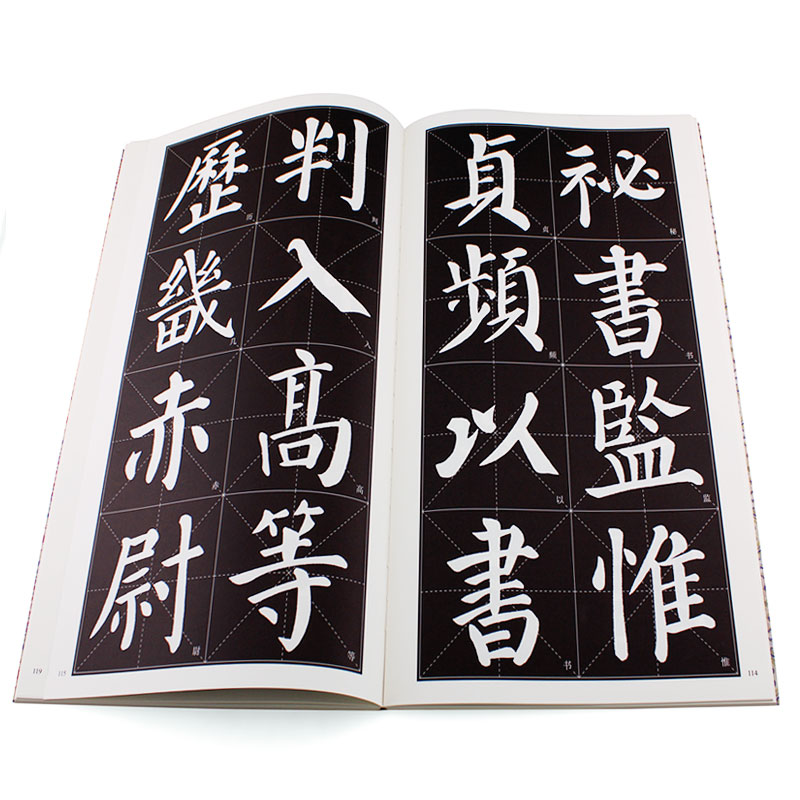 祕書監惟
秘
书
监
惟
貞頻以書
贞
频
以
书
114
判入高等
判
入
高
等
歷畿赤尉
历
几
赤
尉
115
119